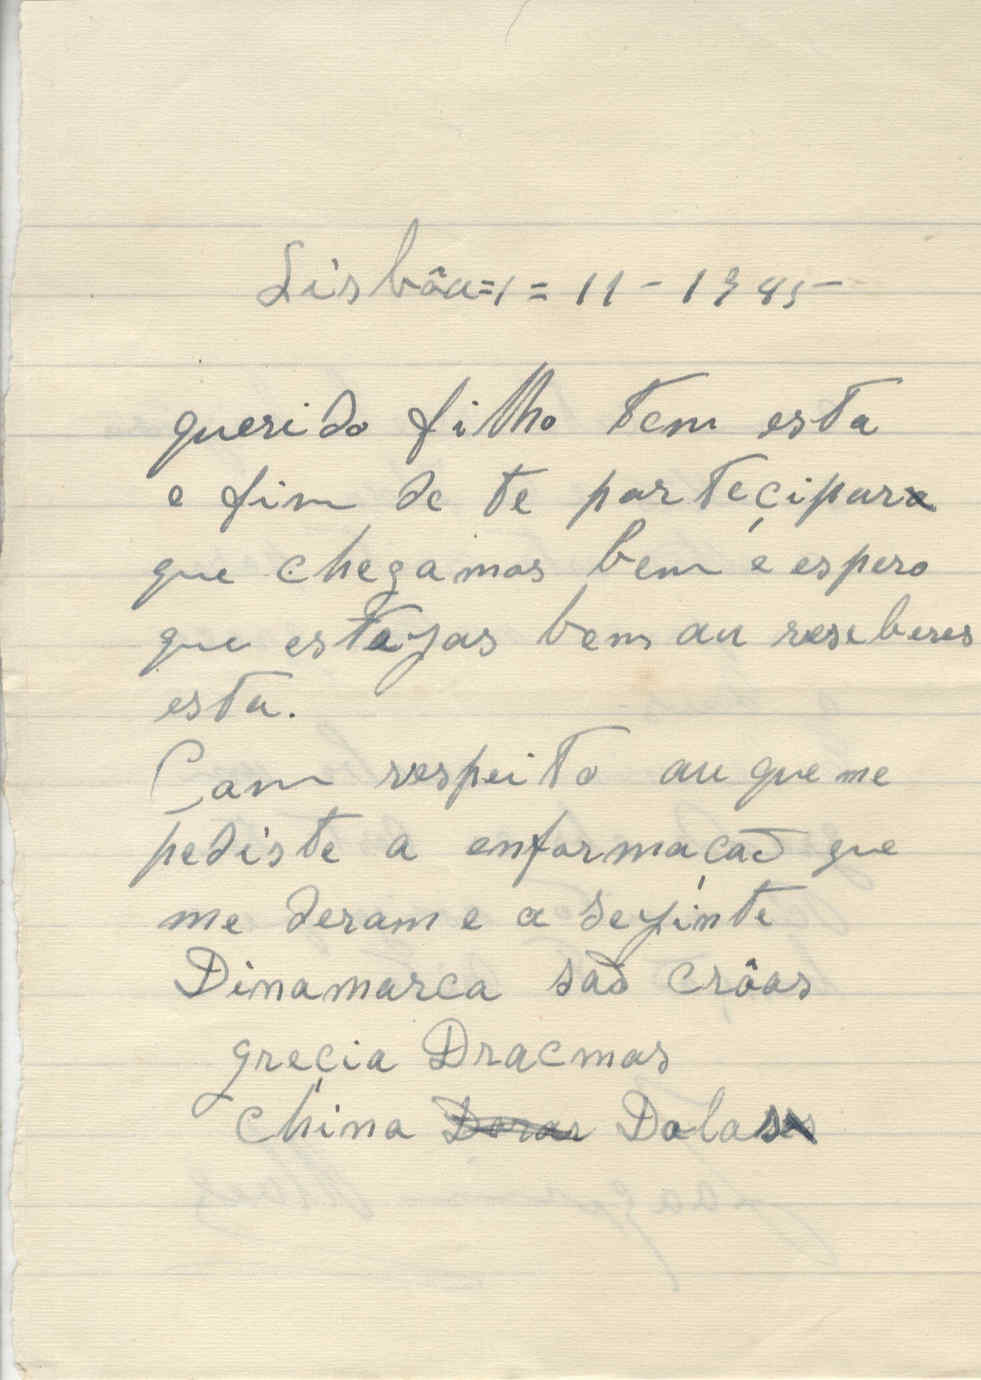 Lisbôa=1=11-1945
querido filho tem esta
e fim de te parteçipara
que chegamos bem e espero
que estejas bem au reseberes
esta.
Com respeito au que me
pediste a enformacaõ que
me deram e a seyinte
Dinamarca saõ crôas
greçia Dracmas
China Doras Dolas